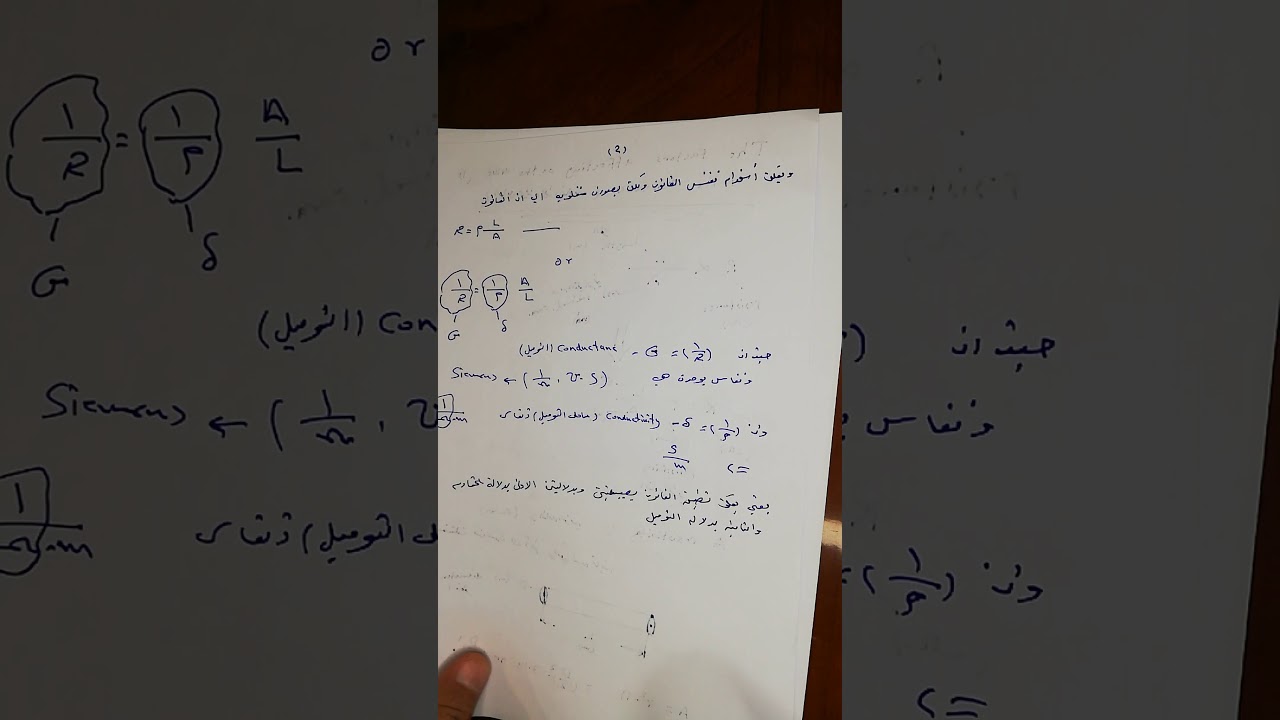 (2)
ويمكن أستخدام نفس القانون ولكن بصورة مقلوبه اي ان القانون
R = ρ L/A
or
1/R = 1/ρ A/L
G δ
حيث ان (1/R) = G - Conductance (التوصيل)
وتقاس بوحدة هي (1/Ω , ℧ . S) ← Siemens
وان (1/ρ) = δ - Conductivity (معامل التوصيل) تقاس 1/Ω.m
=> S/m
يعني يمكن تطبيق القانون بصيغتين وبدلالتين الاولى بدلالة المقاومه
والثانية بدلالة التوصيل